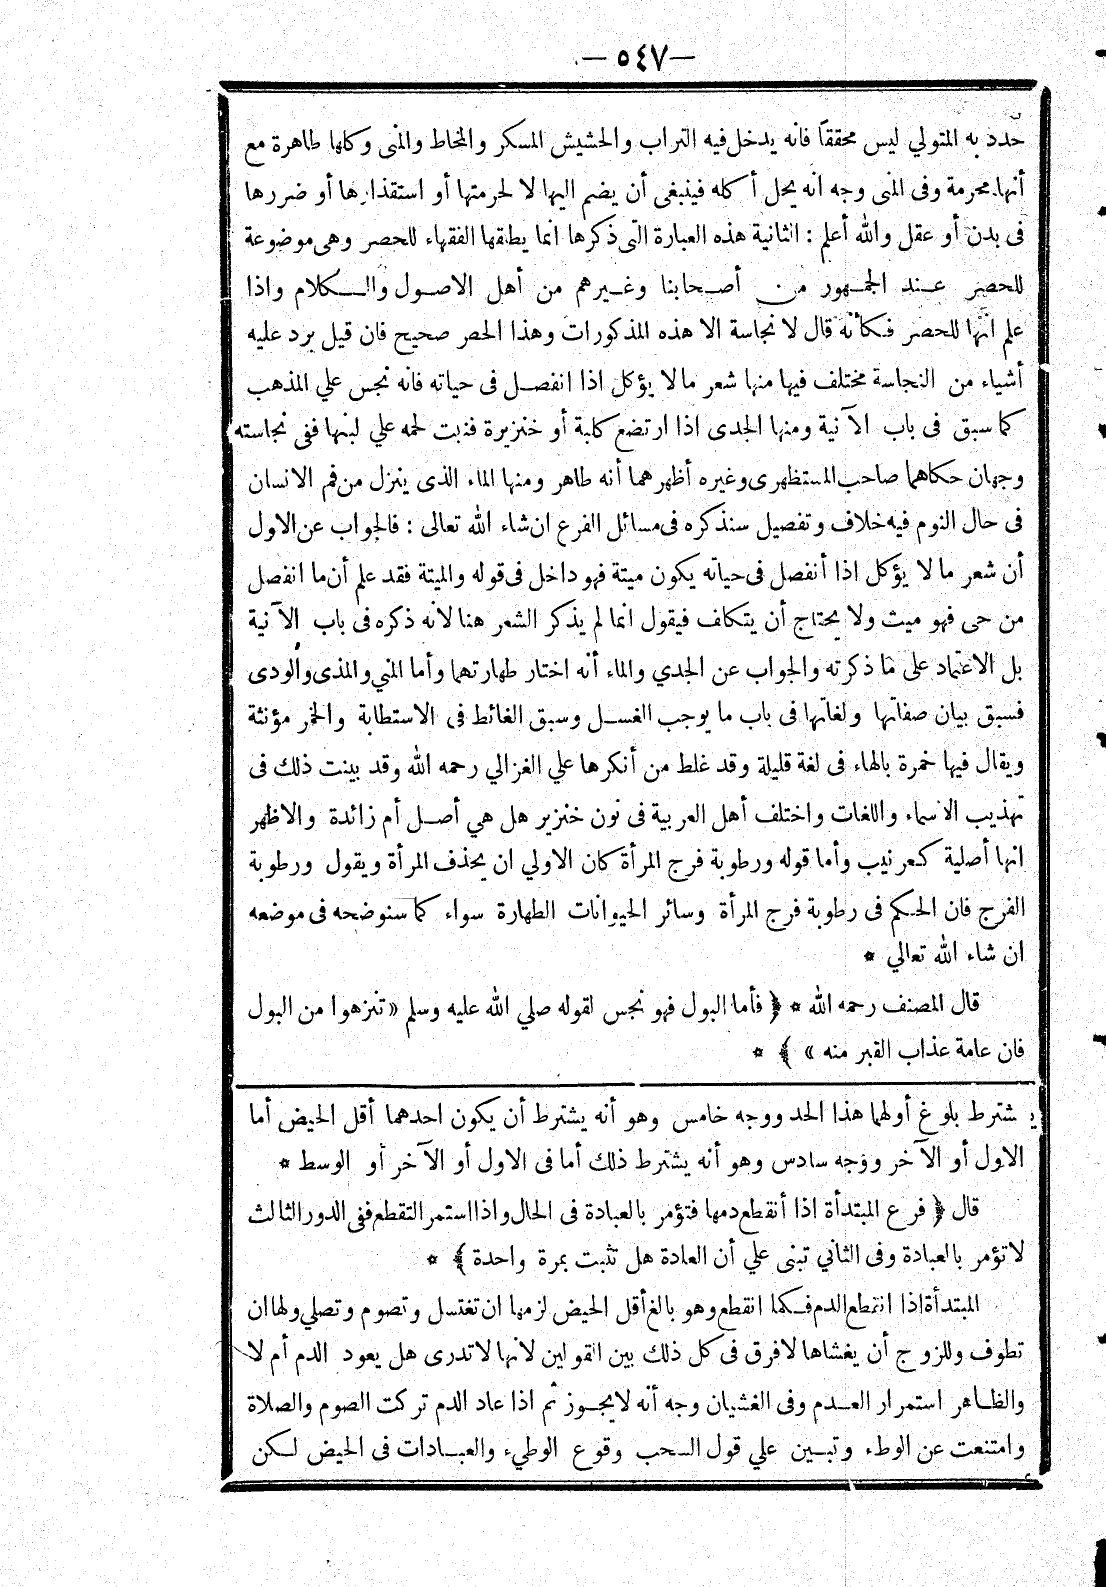 —٥٤٧—
حدد به المتولي ليس محققاً فانه يدخل فيه التراب والحشيش المسكر والمخاط والمنى وكلها طاهرة مع
أنها محرمة وفى المنى وجه انه يحل أكله فينبغى أن يضم اليها لا لحرمتها أو استقذارها أو ضررها
فى بدن أو عقل والله أعلم : الثانية هذه العبارة التى ذكرها انما يطلقها الفقهاء للحصر وهى موضوعة
للحصر عند الجمهور من أصحابنا وغيرهم من أهل الاصول والكلام واذا
علم انها للحصر فكأنه قال لا نجاسة الا هذه المذكورات وهذا الحصر صحيح فان قيل يرد عليه
أشياء من النجاسة مختلف فيها منها شعر ما لا يؤكل اذا انفصل فى حياته فانه نجس علي المذهب
كما سبق فى باب الآنية ومنها الجدى اذا ارتضع كلبة أو خنزيرة فنبت لحمه علي لبنها ففى نجاسته
وجهان حكاهما صاحب المستظهرى وغيره أظهرهما أنه طاهر ومنها الماء الذى ينزل من فم الانسان
فى حال النوم فيه خلاف وتفصيل سنذكره فى مسائل الفرع ان شاء الله تعالى : فالجواب عن الاول
أن شعر ما لا يؤكل اذا أنفصل فى حياته يكون ميتة فهو داخل فى قوله والميتة فقد علم أن ما انفصل
من حى فهو ميت ولا يحتاج أن يتكلف فيقول انما لم يذكر الشعر هنا لانه ذكره فى باب الآنية
بل الاعتماد على ما ذكرته والجواب عن الجدي والماء أنه اختار طهارتهما وأما المني والمذى والودى
فسبق بيان صفاتها ولغاتها فى باب ما يوجب الغسل وسبق الغائط فى الاستطابة والخمر مؤنثة
ويقال فيها خمرة بالهاء فى لغة قليلة وقد غلط من أنكرها علي الغزالي رحمه الله وقد بينت ذلك فى
تهذيب الاسماء واللغات واختلف أهل العربية فى نون خنزير هل هي أصل أم زائدة والاظهر
انها أصلية كعرنيب وأما قوله ورطوبة فرج المرأة كان الاولي ان يحذف المرأة ويقول ورطوبة
الفرج فان الحكم فى رطوبة فرج المرأة وسائر الحيوانات الطهارة سواء كما سنوضحه فى موضعه
ان شاء الله تعالي *
قال المصنف رحمه الله * ﴿ فأما البول فهو نجس لقوله صلي الله عليه وسلم « تنزهوا من البول
فان عامة عذاب القبر منه » ﴾ *
يشترط بلوغ أولهما هذا الحد ووجه خامس وهو أنه يشترط أن يكون احدهما أقل الحيض أما
الاول أو الآخر ووجه سادس وهو أنه يشترط ذلك أما فى الاول أو الآخر أو الوسط *
قال ﴿ فرع المبتدأة اذا أنقطع دمها فتؤمر بالعبادة فى الحال واذا استمر التقطع ففى الدور الثالث
لا تؤمر بالعبادة وفى الثاني تبنى علي أن العادة هل تثبت بمرة واحدة ﴾ *
المبتدأة اذا انقطع الدم فكما انقطع وهو بالغ أقل الحيض لزمها ان تغتسل وتصوم وتصلي ولها ان
تطوف وللزوج أن يغشاها لا فرق فى كل ذلك بين القولين لانها لا تدرى هل يعود الدم أم لا
والظاهر استمرار العدم وفى الغشيان وجه أنه لا يجوز ثم اذا عاد الدم تركت الصوم والصلاة
وامتنعت عن الوطء وتبين علي قول السحب وقوع الوطيء والعبادات فى الحيض لكن